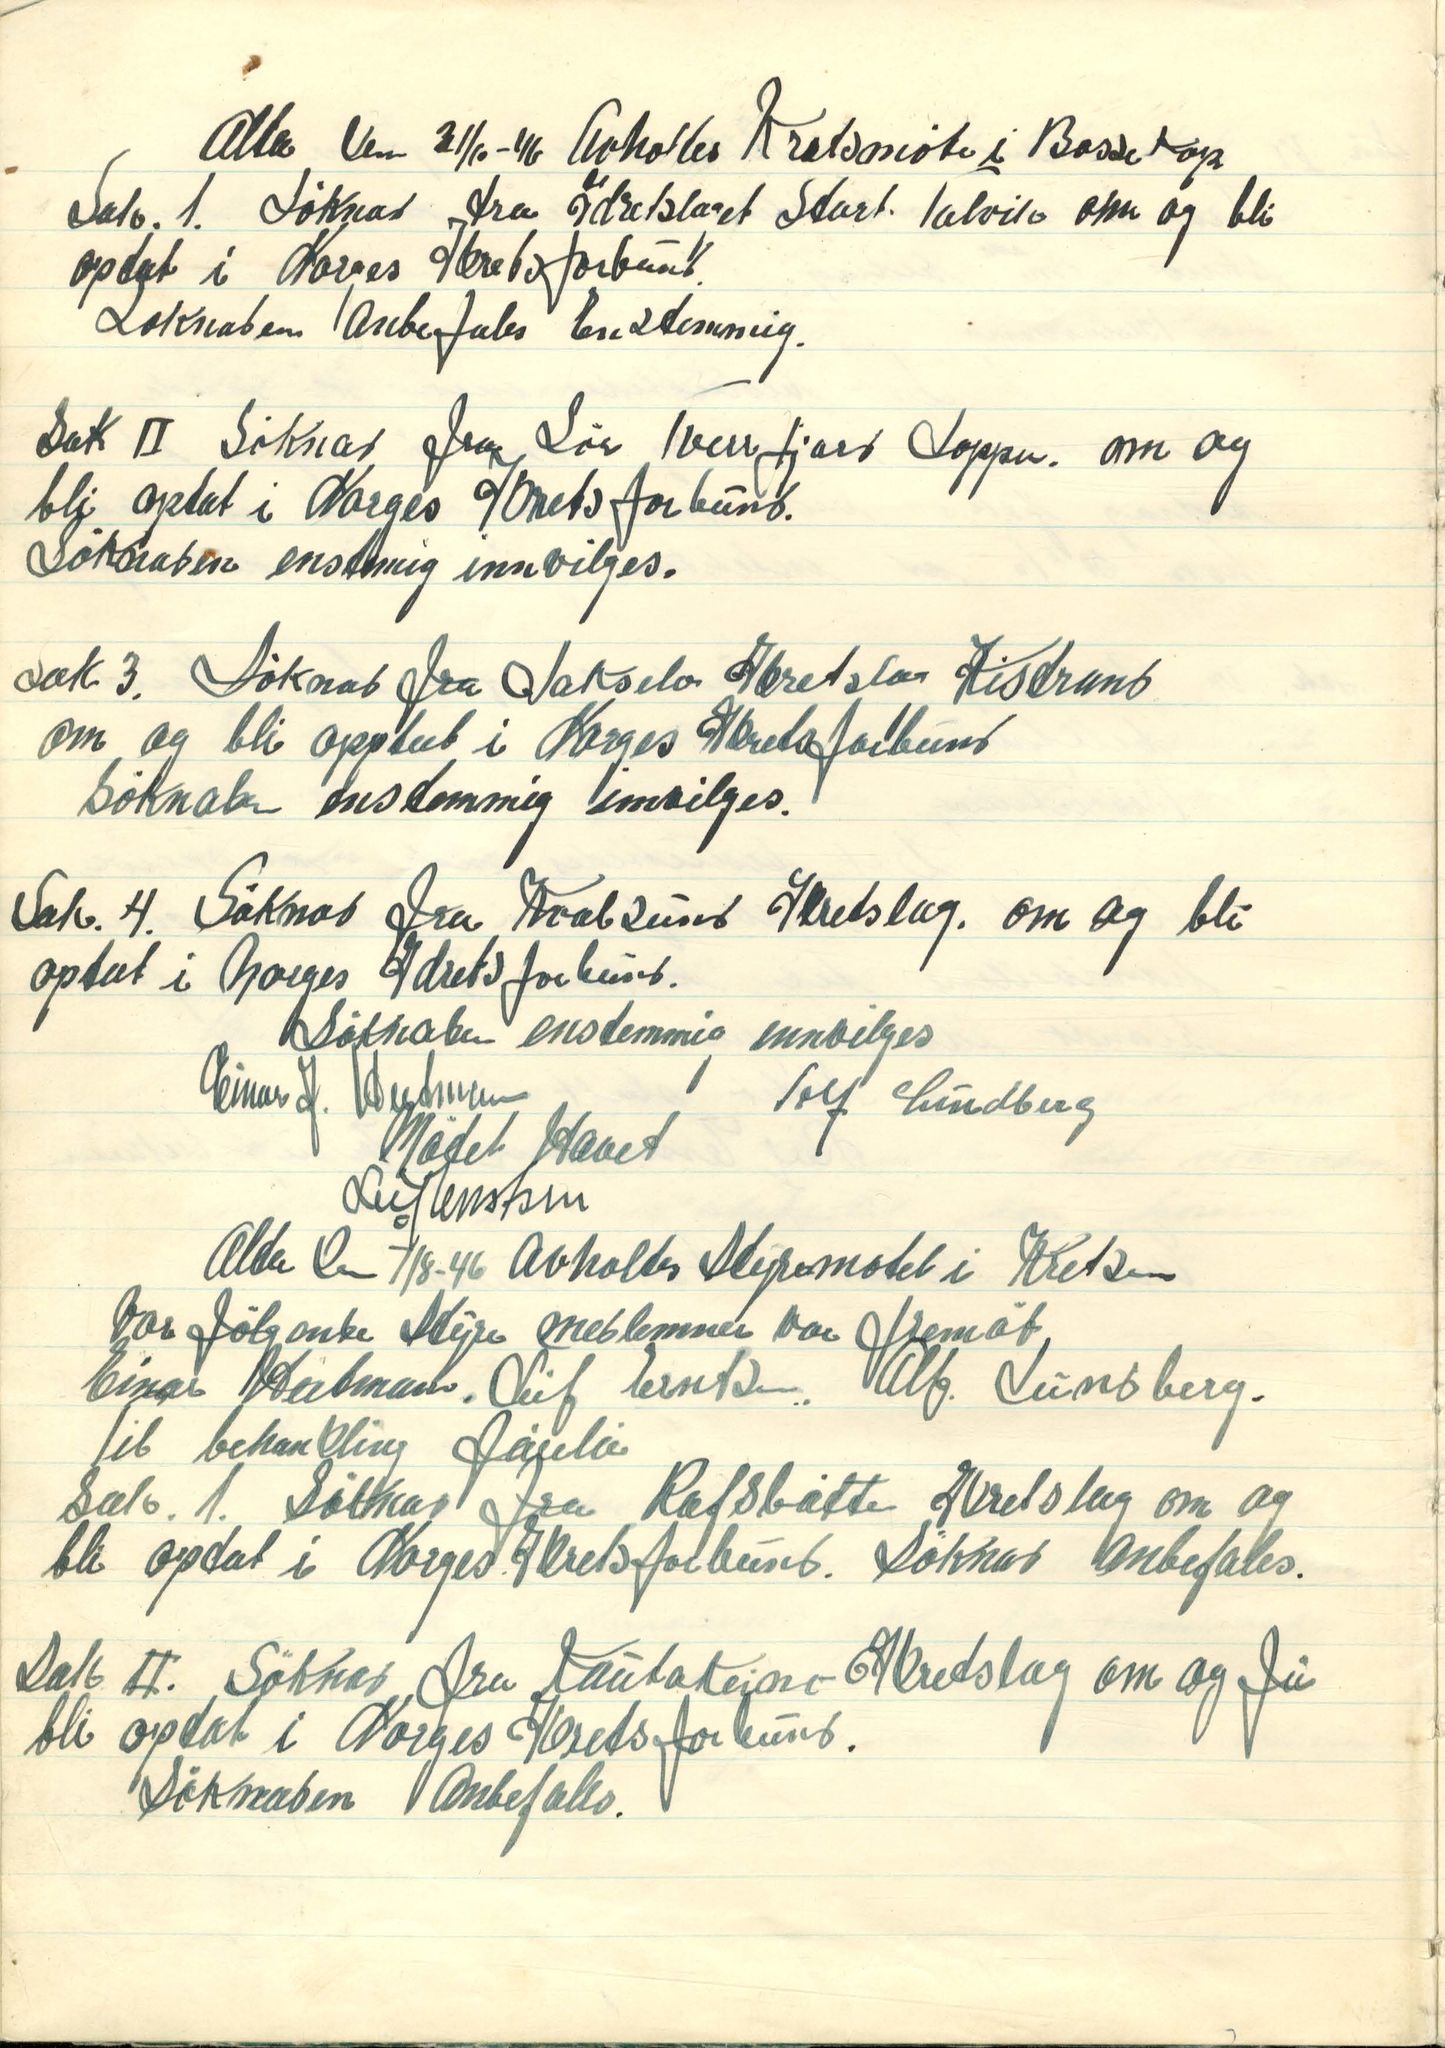 Alta den -46 Avholtes Kretsmöte i Bossekop
Sak. 1. Söknad fra Idretslaget Start Talvik om og bli
optat i Norges Idretsforbund.
Söknaden Anbefales Enstemmig.
Sak II Söknad fra Sör Tverrfjord Loppa. om og
bli optat i Norges Idretsforbund.
Söknaden enstmig innvilges.
Sak 3. Söknad fra Lakselv Idretslag Kistrand
om og bli opptat i Norges Idretsforbund
Söknaden enstemmig innvilges.
Sak. 4. Söknad fra Kvalsund Idretslag. om og bli
optat i Norges Idretsforbund.
Söknaden enstemmig innvilges
Einar Lundberg
Mödet Havet
Alta den 7/8-46 Avholdes Styremötet i Kretsen
Vor fölgende Styre medlemmer var fremöt
Einar Leif Erntsen. Alf. Lundberg.
Til behandling forelå
Sak. 1. Söknad fra Rafsbotten Idretslag om og
bli optat i Norges Idretsforbund. Söknad Anbefales.
Sak II. Söknad fra Kautokeino Idretslag om og få
bli optat i Norges Idretsforbund.
Söknaden Anbefales.